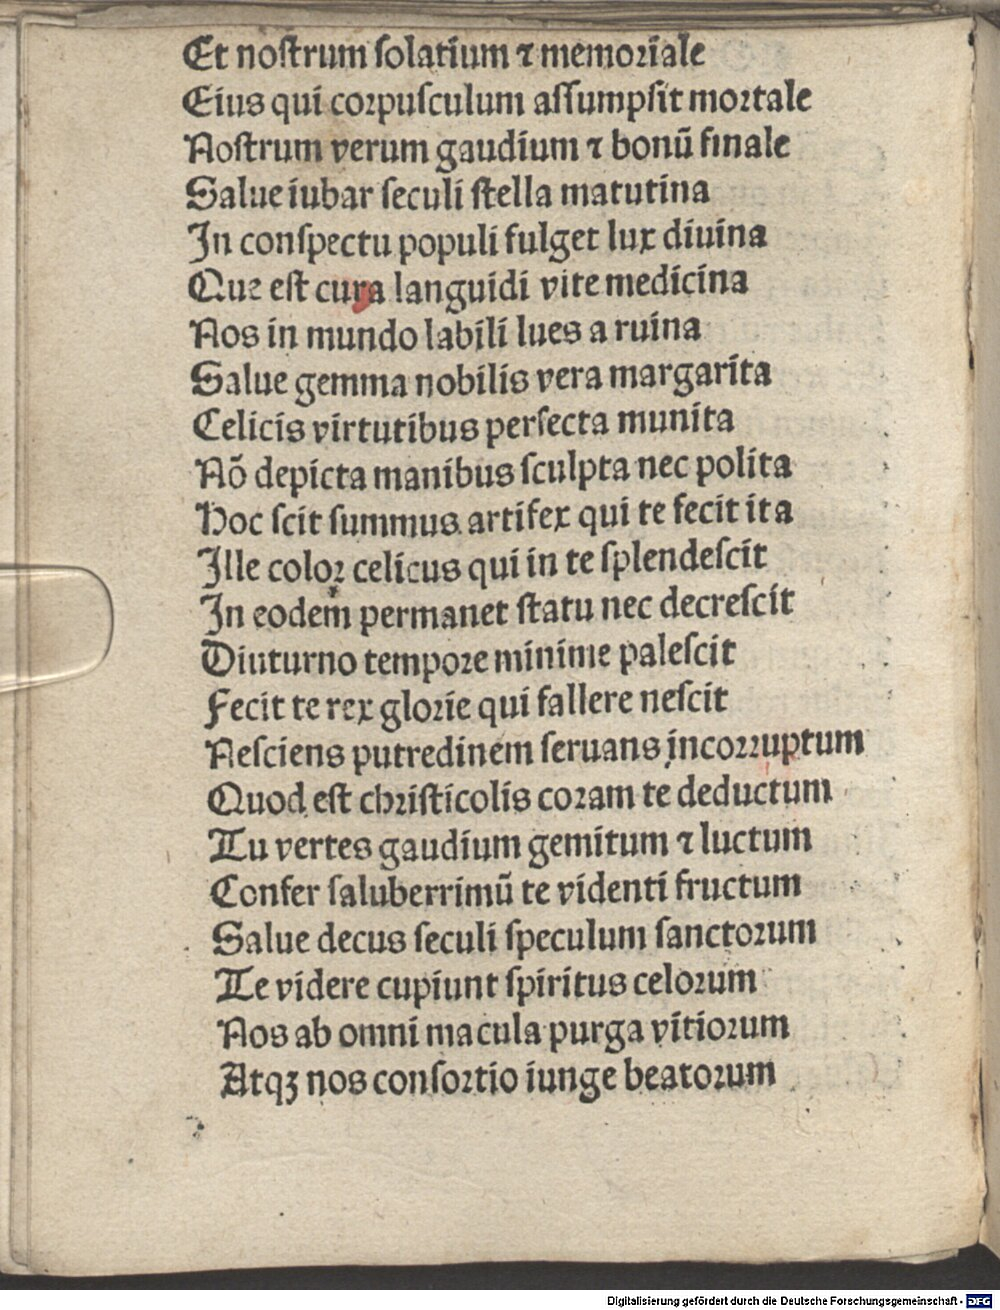 Et noſtrum ſolatium ⁊ memoꝛiale
Eius qui coꝛpuſculum aſſumpſit moꝛtale
Noſtrum verum gaudium ⁊ bonū finale
Salue iubar ſeculi ſtella matutina
In conſpectu populi fulget lux diuina
Que eſt cura languidi vite medicina
Nos in mundo labili lues a ruina
Salue gemma nobilis vera margarita
Celicis virtutibus perfecta munita
Nō depicta manibus ſculpta nec polita
Hoc ſcit ſummus artifex qui te fecit ita
Ille coloꝛ celicus qui in te ſplendeſcit
In eodem permanet ſtatu nec decreſcit
Diuturno tempoꝛe minime paleſcit
Fecit te rex gloꝛie qui fallere neſcit
Neſciens putredinem ſeruans incoꝛꝛuptum
Quod eſt chꝛiſticolis coꝛam te deductum
Tu vertes gaudium gemitum ⁊ luctum
Confer ſaluberrimū te videnti fructum
Salue decus ſeculi ſpeculum ſanctoꝛum
Te videre cupiunt ſpiritus celoꝛum
Nos ab omni macula purga vitioꝛum
Atqꝫ nos conſoꝛtio iunge beatoꝛum
Digitalisierung gefördert durch die Deutsche Forschungsgemeinschaft - DFG